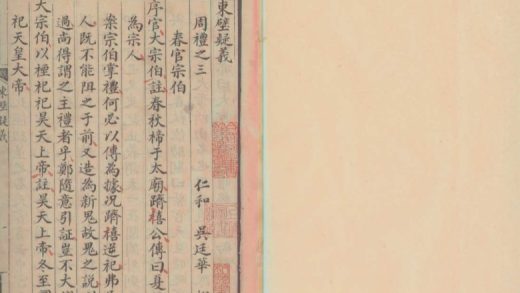 東壁疑義
周禮之三　仁和　吳廷華
春官宗伯
序官大宗伯註春秋禘于太廟躋僖公傳曰夏
為宗人
案宗伯掌禮何必以傳為據況躋僖逆祀弗
人既不能阻之于前又造為新鬼故鬼之說
過尚得謂之主禮者乎鄭隨意引証豈不大
大宗伯以禋祀祀昊天上帝註昊天上帝冬至
祀天皇大帝
東壁疑義